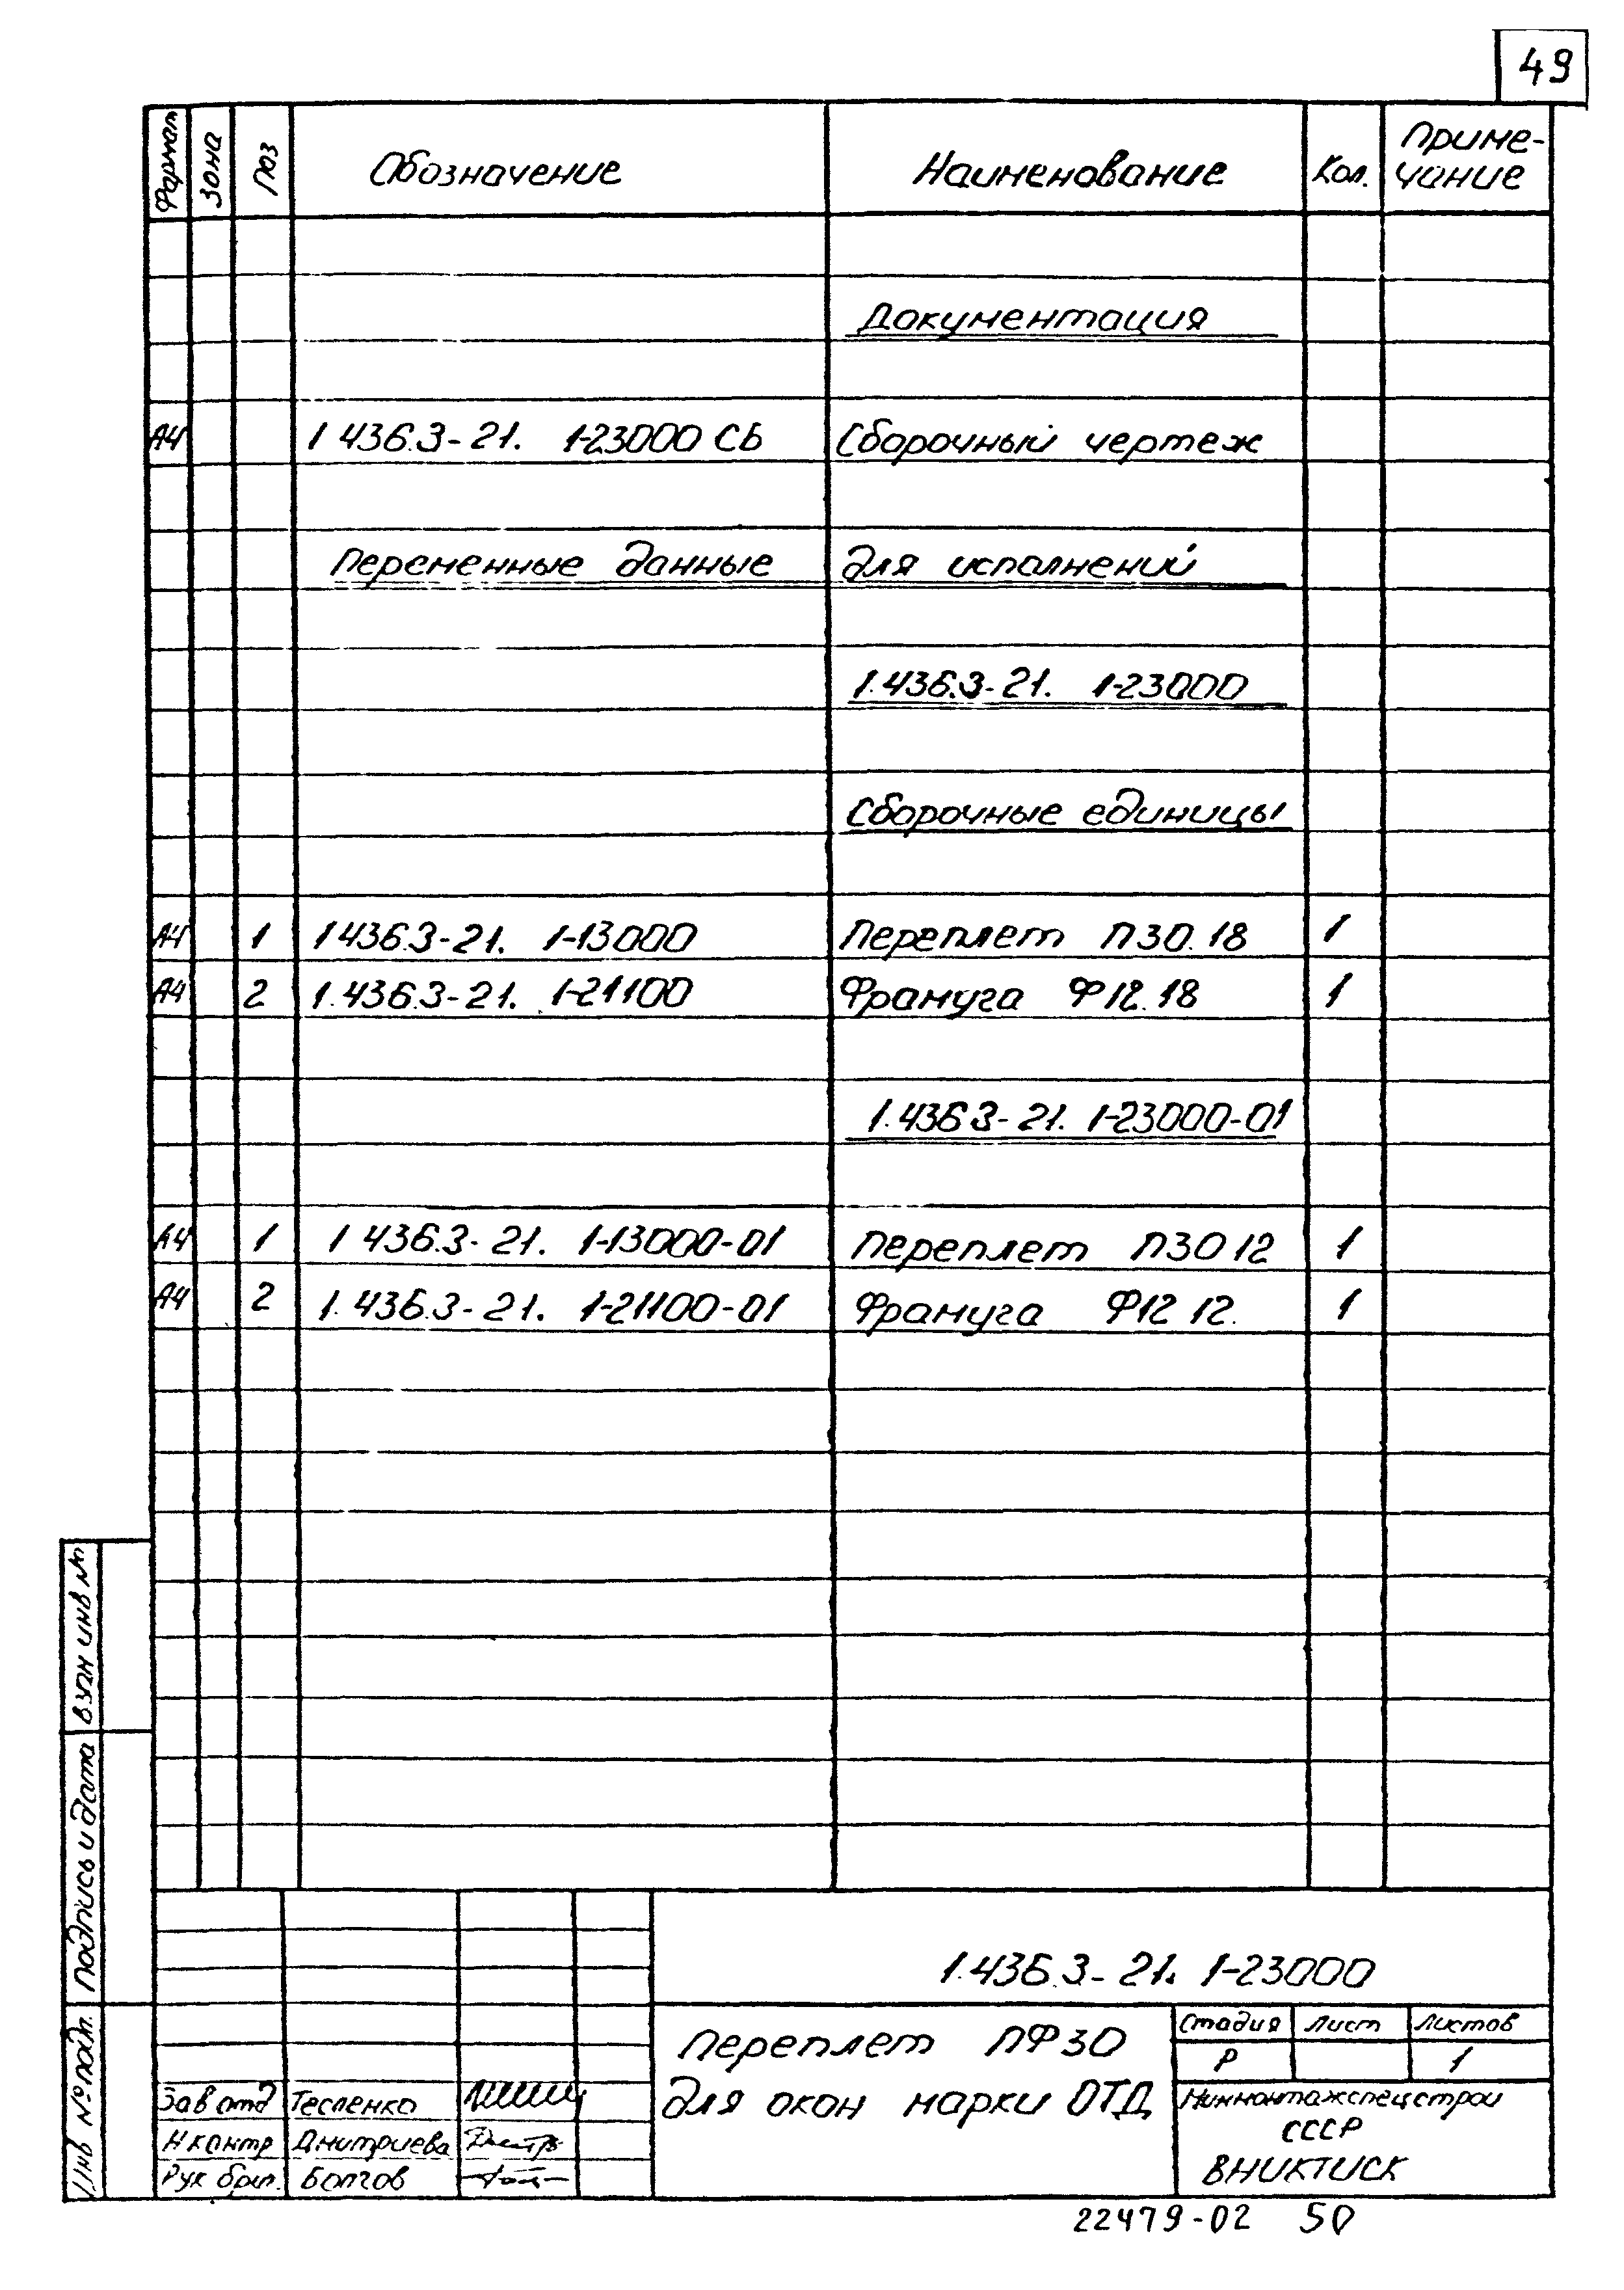 49
Формат Зона Поз Обозначение Наименование Кол. Приме-
чание
Документация
А4 1 436.3-21. 1-23000 СБ Сборочный чертеж
Переменные данные для исполнений
1.436.3-21. 1-23000
Сборочные единицы
А4 1 1 436.3-21. 1-13000 Переплет П30.18 1
А4 2 1.436.3-21. 1-21100 Фрамуга Ф12.18 1
1.436 3-21. 1-23000-01
А4 1 1 436.3-21. 1-13000-01 Переплет П30 12 1
А4 2 1.436.3-21. 1-21100-01 Фрамуга Ф12 12. 1
Взам инв №
Подпись и дата
Инв № подл.
1.436.3-21. 1-23000
Переплет ПФ30
для окон марки ОТД
Стадия Лист Листов
Р 1
Минмонтажспецстрой
СССР
ВНИКТИСК
Зав отд Тесленко
Н контр Дмитриева
Рук бриг. Болгов
22479-02 50